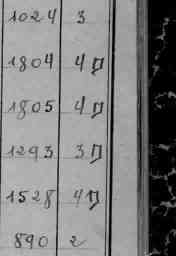 1024 3
1804 4
1805 4
1293 3
1528 4
890 2